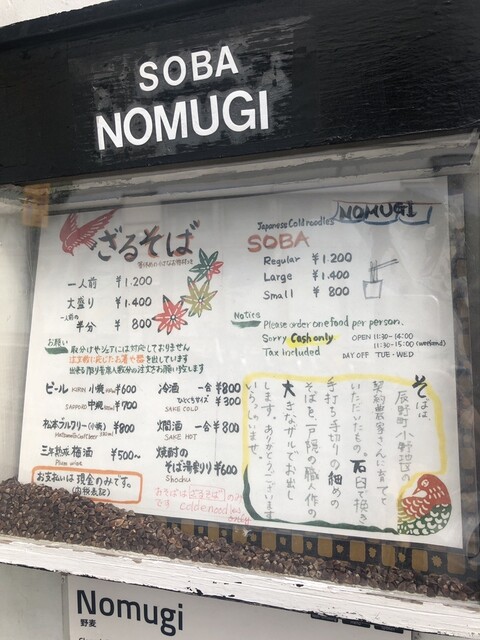 SOBA
NOMUGI
ざるそば
一人前 ¥1.200
大盛り ¥1.400
一人前の半分 ¥800
お願い
取分けやシェアには対応しておりません
ビール KIRIN 小瓶 ¥600
SAPPORO 中瓶 ¥700
松本ブルワリー(小瓶) ¥800
三年熟成 梅酒 ¥500~
Plum wine
お支払いは現金のみです。
(内税表記)
冷酒 一合 ¥800
ひとくちサイズ ¥300
SAKE COLD
燗酒 一合 ¥800
SAKE HOT
焼酎の
そば湯割り ¥600
Shochu
cold noodles
Japanese Cold noodles
NOMUGI
SOBA
Regular ¥1.200
Large ¥1.400
Small ¥800
Notice
Please order one food per person.
Sorry Cash only
Tax included
OPEN 11:30-14:00
11:30-15:00 (weekend)
DAY OFF TUE・WED
そばは、
辰野町小野地区の
契約農家さんに育てて
いただいたもの。石臼で挽き
手打ち手切りの細めの
そばを、戸隠の職人作の
大きなザルでお出し
します。ありがとうございます
いらっしゃいませ。
Nomugi
野麦